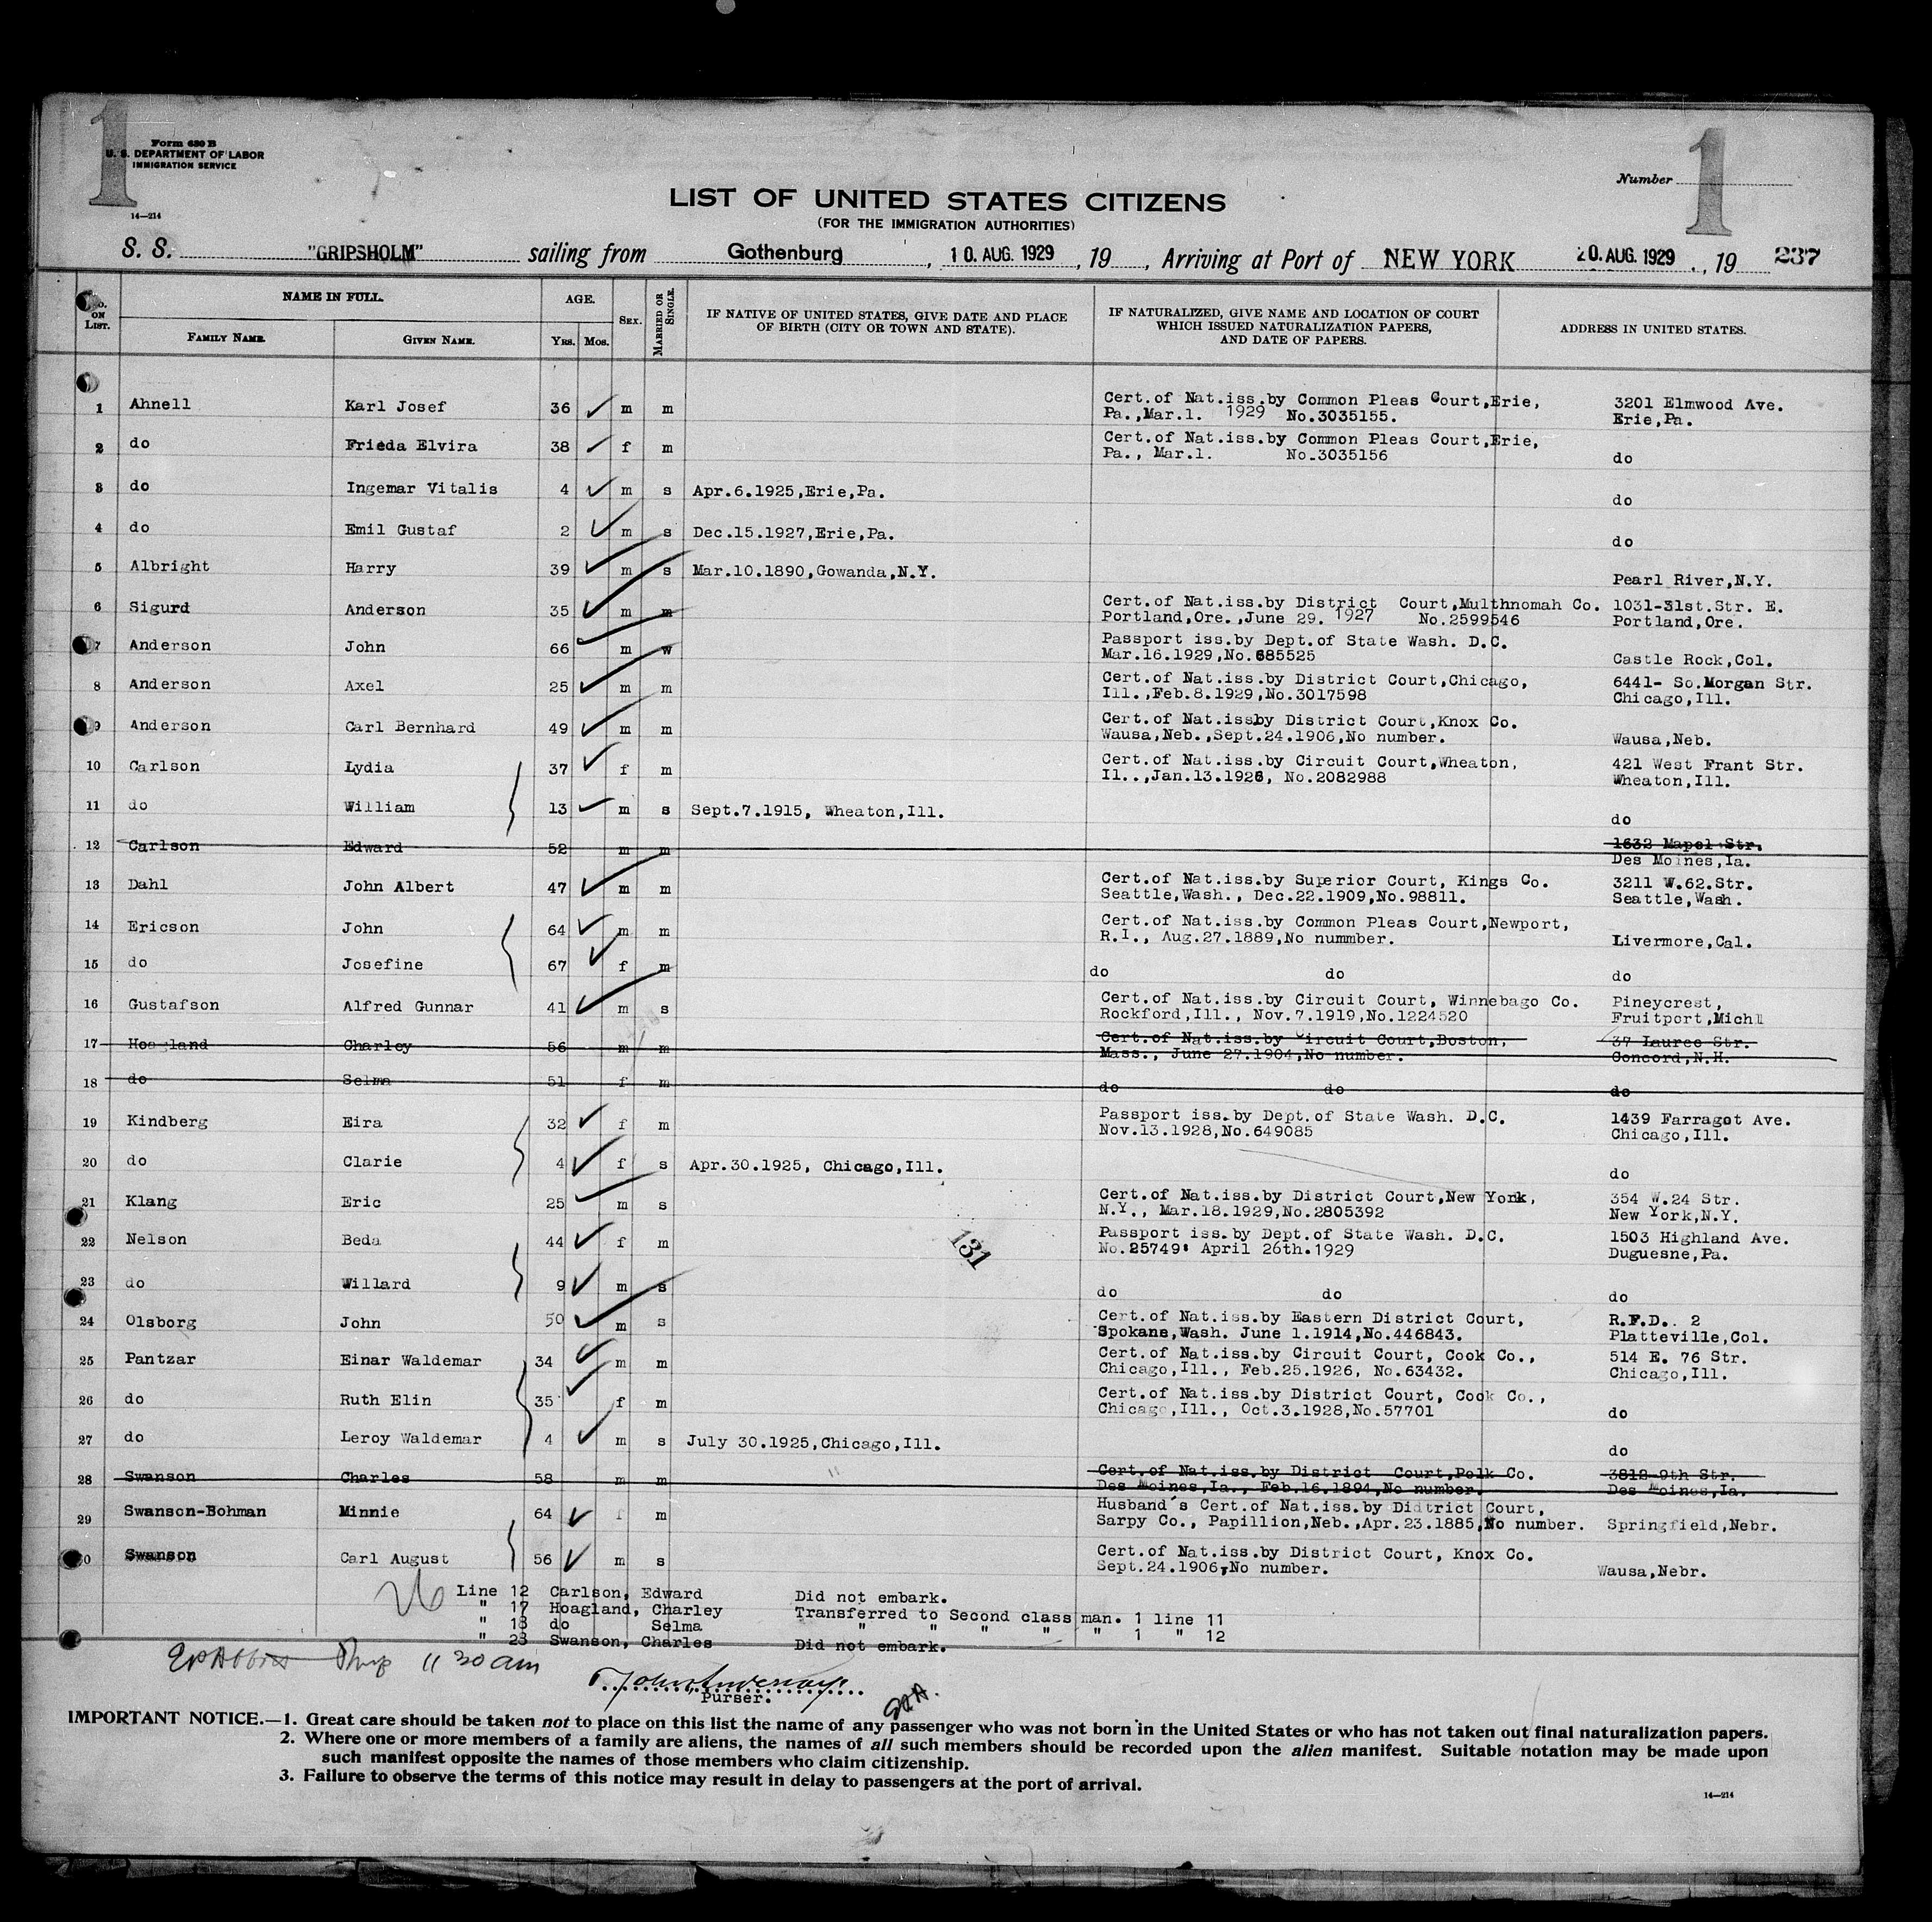 1
1
Form 630 B
U. S. DEPARTMENT OF LABOR
IMMIGRATION SERVICE
14—214
Number
LIST OF UNITED STATES CITIZENS
(FOR THE IMMIGRATION AUTHORITIES)
S. S. "GRIPSHOLM" sailing from Gothenburg, 10. AUG. 1929, 19, Arriving at Port of NEW YORK 20. AUG. 1929., 19 237
No. ON LIST. NAME IN FULL. AGE. SEX. MARRIED OR SINGLE. IF NATIVE OF UNITED STATES, GIVE DATE AND PLACE OF BIRTH (CITY OR TOWN AND STATE). IF NATURALIZED, GIVE NAME AND LOCATION OF COURT WHICH ISSUED NATURALIZATION PAPERS, AND DATE OF PAPERS. ADDRESS IN UNITED STATES.
FAMILY NAME. GIVEN NAME. YRS. MOS.
1 Ahnell Karl Josef 36 m m Cert.of Nat.iss.by Common Pleas Court,Erie, 3201 Elmwood Ave.
Pa.,Mar.1. 1929 No.3035155. Erie,Pa.
2 do Frieda Elvira 38 f m Cert.of Nat.iss.by Common Pleas Court,Erie,
Pa., Mar.1. No.3035156 do
3 do Ingemar Vitalis 4 m s Apr.6.1925,Erie,Pa. do
4 do Emil Gustaf 2 m s Dec.15.1927,Erie,Pa. do
5 Albright Harry 39 m s Mar.10.1890,Gowanda,N.Y. Pearl River,N.Y.
6 Sigurd Anderson 35 m m Cert.of Nat.iss.by District Court,Multhnomah Co. 1031-31st.Str. E.
Portland,Ore.,June 29. 1927 No.2599546 Portland,Ore.
7 Anderson John 66 m w Passport iss.by Dept.of State Wash. D.C.
Mar.16.1929,No.685525 Castle Rock,Col.
8 Anderson Axel 25 m m Cert.of Nat.iss.by District Court,Chicago, 6441- So.Morgan Str.
Ill.,Feb.8.1929,No.3017598 Chicago,Ill.
9 Anderson Carl Bernhard 49 m m Cert.of Nat.issby District Court,Knox Co.
Wausa,Neb.,Sept.24.1906,No number. Wausa,Neb.
10 Carlson Lydia 37 f m Cert.of Nat.iss.by Circuit Court,Wheaton, 421 West Frant Str.
Il..,Jan.13.1926, No.2082988 Wheaton,Ill.
11 do William 13 m s Sept.7.1915, Wheaton,Ill. do
12 Carlson Edward 52 m m 1632 Mapel Str.
Des Moines,Ia.
13 Dahl John Albert 47 m m Cert.of Nat.iss.by Superior Court, Kings Co. 3211 W.62.Str.
Seattle,Wash., Dec.22.1909,No.98811. Seattle,Wash.
14 Ericson John 64 m m Cert.of Nat.iss.by Common Pleas Court,Newport,
R.I., Aug.27.1889,No nummber. Livermore,Cal.
15 do Josefine 67 f m do do do
16 Gustafson Alfred Gunnar 41 m s Cert.of Nat.iss.by Circuit Court, Winnebago Co. Pineycrest,
Rockford,Ill., Nov.7.1919,No.1224520 Fruitport,Michl
17 Hoagland Charley 56 m m Cert.of Nat.iss.by Circuit Court,Boston, 37 Lauree Str.
Mass., June 27.1904,No number. Concord,N.H.
18 do Selma 51 f m do do do
19 Kindberg Eira 32 f m Passport iss.by Dept.of State Wash. D.C. 1439 Farragot Ave.
Nov.13.1928,No.649085 Chicago,Ill.
20 do Clarie 4 f s Apr.30.1925, Chicago,Ill. do
21 Klang Eric 25 m s Cert.of Nat.iss.by District Court,New York, 354 W.24 Str.
N.Y., Mar.18.1929,No.2805392 New York,N.Y.
22 Nelson Beda 44 f m Passport iss.by Dept.of State Wash. D.C. 1503 Highland Ave.
No.25749: April 26th.1929 Duguesne,Pa.
131
23 do Willard 9 m s do do do
24 Olsborg John 50 m s Cert.of Nat.iss.by Eastern District Court, R.F.D.. 2
Spokane,Wash. June 1.1914,No.446843. Platteville,Col.
25 Pantzar Einar Waldemar 34 m m Cert.of Nat.iss.by Circuit Court, Cook Co., 514 E. 76 Str.
Chicago,Ill., Feb.25.1926, No.63432. Chicago,Ill.
26 do Ruth Elin 35 f m Cert.of Nat.iss.by District Court, Cook Co.,
Chicago,Ill., Oct.3.1928,No.57701 do
27 do Leroy Waldemar 4 m s July 30.1925,Chicago,Ill. do
28 Swanson Charles 58 m m Cert.of Nat.iss.by District Court,Polk Co. 3812-9th Str.
Des Moines,Ia., Feb.16.1894,No number. Des Moines,Ia.
29 Swanson-Bohman Minnie 64 f m Husband's Cert.of Nat.iss.by District Court,
Sarpy Co., Papillion,Neb.,Apr.23.1885,No number. Springfield,Nebr.
30 Swanson Carl August 56 m s Cert.of Nat.iss.by District Court, Knox Co.
Sept.24.1906,No number. Wausa,Nebr.
26 Line 12 Carlson, Edward Did not embark.
" 17 Hoagland, Charley Transferred to Second class man. 1 line 11
" 18 do Selma " " " " " 1 " 12
" 28 Swanson, Charles Did not embark.
11 20 am
Purser.
IMPORTANT NOTICE.—1. Great care should be taken not to place on this list the name of any passenger who was not born in the United States or who has not taken out final naturalization papers.
2. Where one or more members of a family are aliens, the names of all such members should be recorded upon the alien manifest. Suitable notation may be made upon
such manifest opposite the names of those members who claim citizenship.
3. Failure to observe the terms of this notice may result in delay to passengers at the port of arrival.
14—214